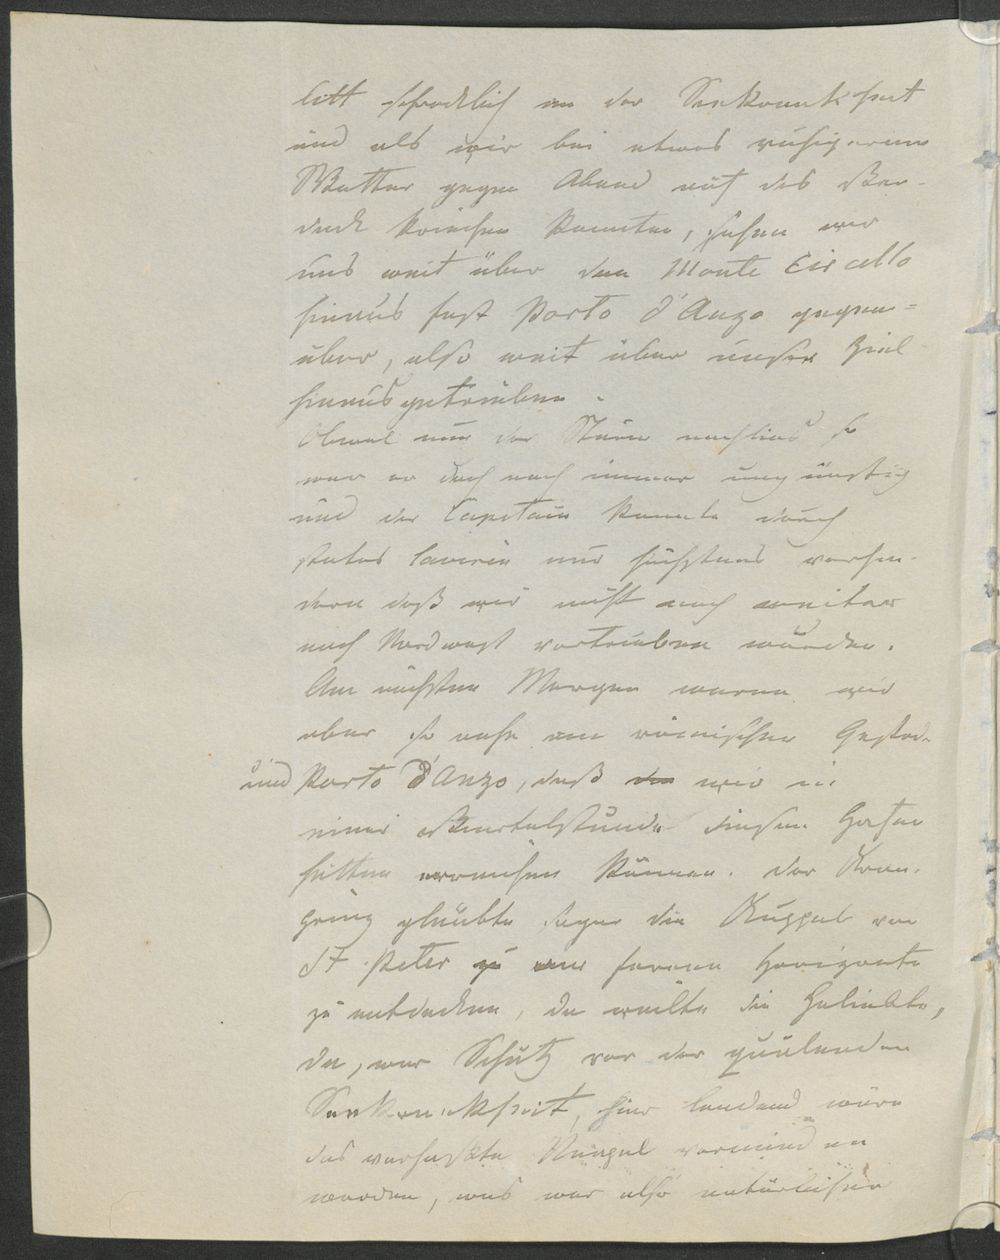 litt schrecklich an der Seekrankheit
und als wir bei etwas ruhigerem
Wetter gegen Abend auf das Ver-
deck kriechen konnten, sahen wir
uns weit über den Monte Circello
hinaus fast Porto d'Anzo gegen=
über, also weit über unser Ziel
hinausgetrieben.
Obwol nun der Sturm nachlies so
war er doch noch immer ungünstig
und der Capitain konnte durch
stetes laviren nur höchstens verhin-
dern daß wir nicht noch weiter
nach Nordwest vertrieben wurden.
Am nächsten Morgen waren wir
aber so nahe am römischen Gestade
und Porto d'Anzo, daß wir in
einer Viertelstunde diesen Hafen
hätten erreichen können. Der
glaubte sogar die Kuppel von
St. Peter am fernen Horizonte
zu entdecken, da weilte die Geliebte,
da, war Schutz vor der quälenden
Seekrankheit, hier landend wäre
das verhaßte Neapel vermieden
worden, was war also natürlicher